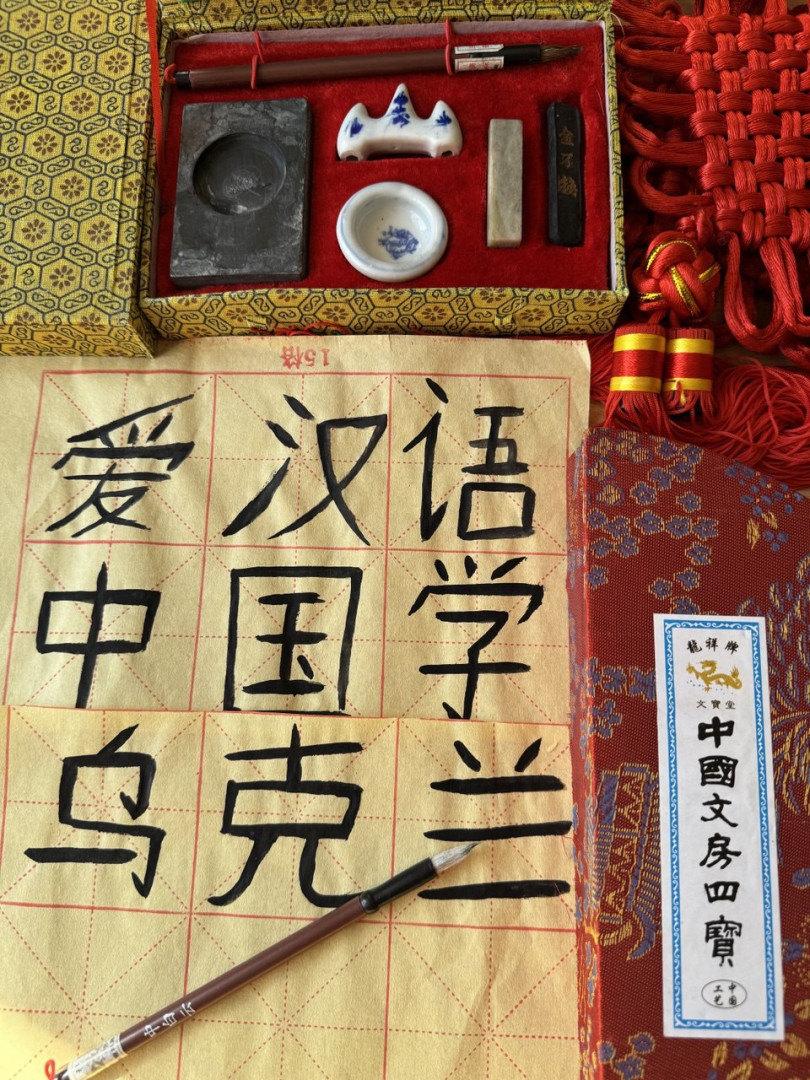 金不换
15格
爱汉语
中国学
乌克兰
中白云
龍祥牌
文寶堂
中國文房四寶
中国
工艺